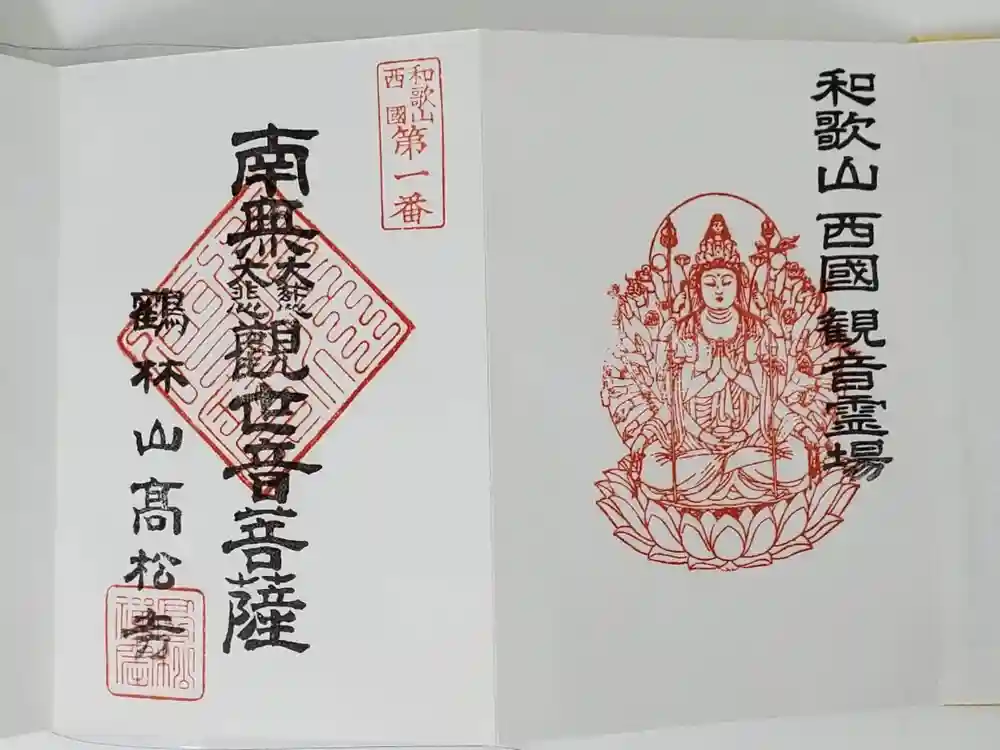 和歌山西國観音霊場
和歌山
西國
第一番
南無大慈大悲觀世音菩薩
鶴林山髙松寺